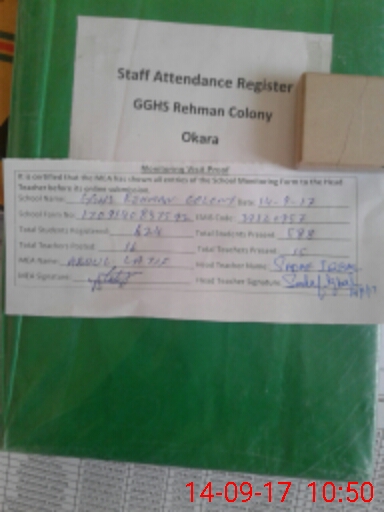 Staff Attendance Register
GGHS Rehman Colony
Okara
Monitoring Visit Proof
It is certified that the MEA has shown all entries of the School Monitoring Form to the Head
Teacher before its online submission.
School Name: GGHS REHMAN COLONY Date 14-9-17
School Form No: EMIS Code:
Total Students Registered: 624 Total Students Present: 588
Total Teachers Posted: 16 Total Teachers Present: 15
MEA Name: ABDUL LATIF Head Teacher Name: SADAF IQBAL
MEA Signature: Head Teacher Signature: Sadaf Iqbal
14-09-17 10:50